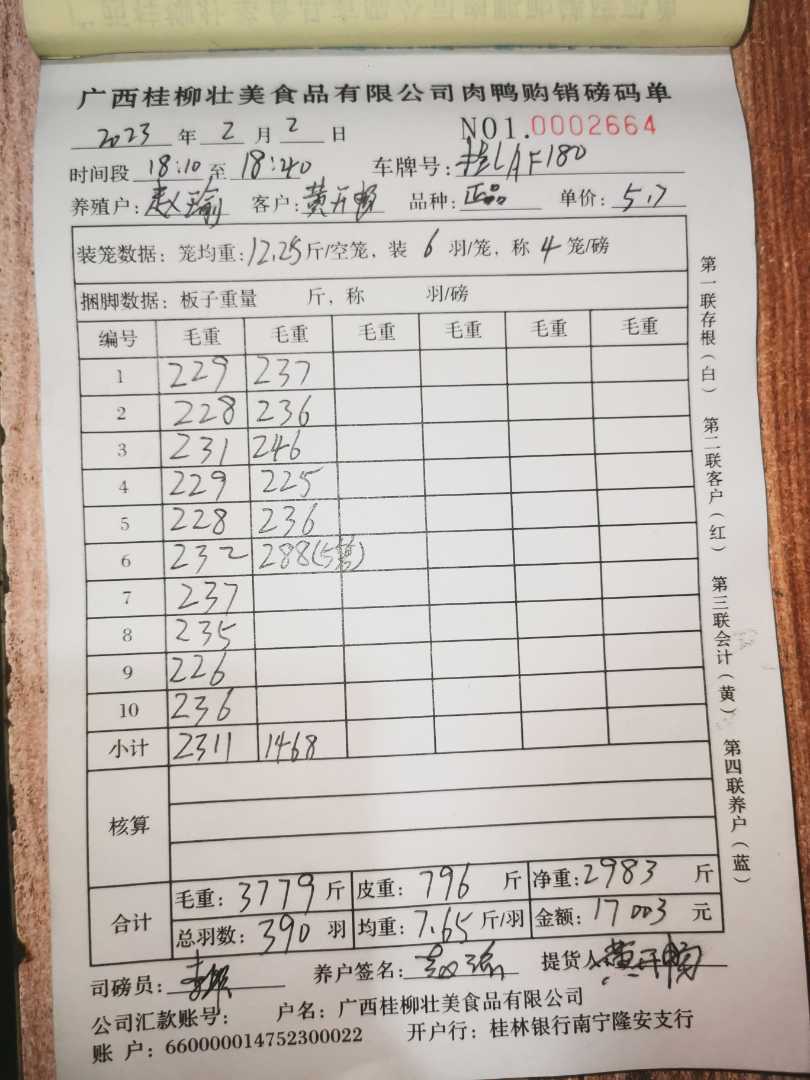 广西桂柳壮美食品有限公司肉鸭购销磅码单
2023 年 2 月 2 日 NO1.0002664
时间段 18:10 至 18:40 车牌号: 桂LAF180
养殖户: 赵瑜 客户: 黄开畅 品种: 正品 单价: 5.7
装笼数据: 笼均重: 12.25 斤/空笼, 装 6 羽/笼, 称 4 笼/磅
捆脚数据: 板子重量 斤, 称 羽/磅
编号 毛重 毛重 毛重 毛重 毛重 毛重
1 229 237
2 228 236
3 231 246
4 229 225
5 228 236
6 232 288(5笼)
7 237
8 235
9 226
10 236
小计 2311 1468
核算
合计 毛重: 3779 斤 皮重: 796 斤 净重: 2983 斤
总羽数: 390 羽 均重: 7.65 斤/羽 金额: 17003 元
司磅员: 养户签名: 提货人: 黄开畅
公司汇款账号: 户名: 广西桂柳壮美食品有限公司
账 户: 660000014752300022 开户行: 桂林银行南宁隆安支行
第一联存根(白) 第二联客户(红) 第三联会计(黄) 第四联养户(蓝)